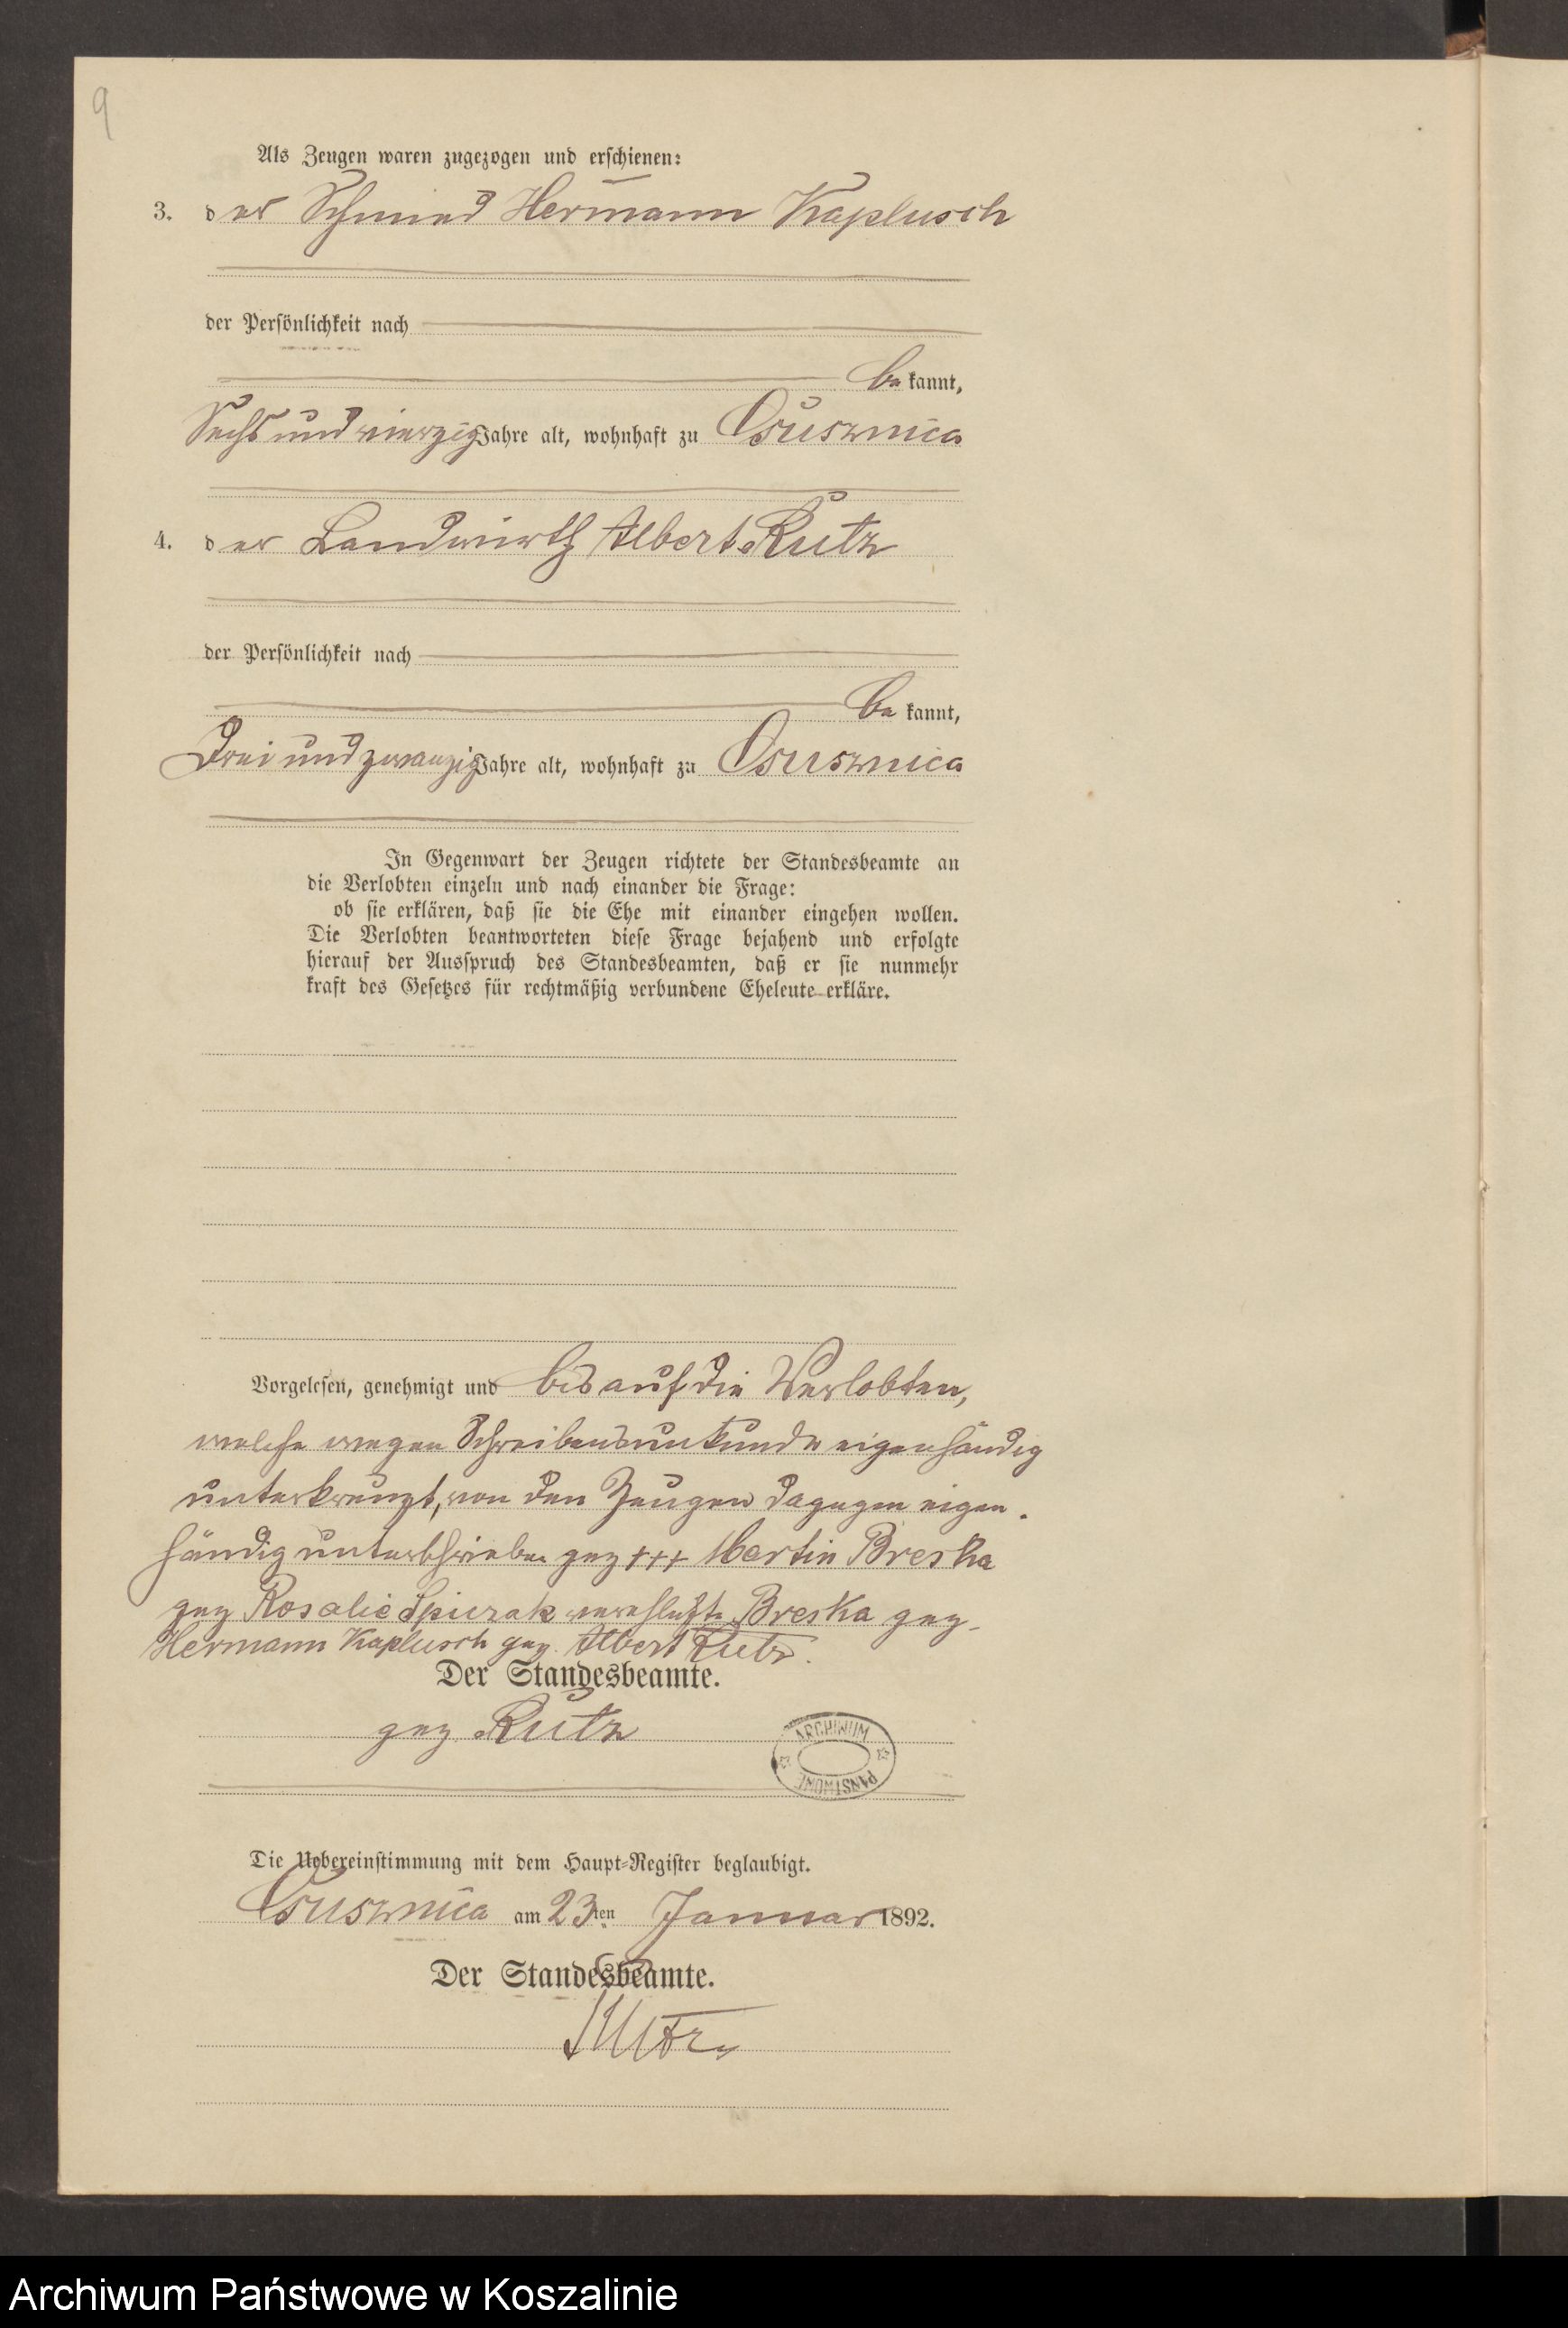 9
Als Zeugen waren zugezogen und erschienen:
3. der Schmied Hermann Kaplusch
der Persönlichkeit nach
be kannt,
Sechs und vierzig Jahre alt, wohnhaft zu Ossusznica
4. der Landwirth Albert Rutz
der Persönlichkeit nach
be kannt,
Drei und zwanzig Jahre alt, wohnhaft zu Ossusznica
In Gegenwart der Zeugen richtete der Standesbeamte an
die Verlobten einzeln und nach einander die Frage:
ob sie erklären, daß sie die Ehe mit einander eingehen wollen.
Die Verlobten beantworteten diese Frage bejahend und erfolgte
hierauf der Ausspruch des Standesbeamten, daß er sie nunmehr
kraft des Gesetzes für rechtmäßig verbundene Eheleute erkläre.
Vorgelesen, genehmigt und bis auf die Verlobten,
welche wegen Schreibensunkunde eigenhändig
unterkreuzt, von den Zeugen dagegen eigen-
händig unterschrieben gez +++ Martin Breska
gez Rosalie Spiczak verehelichte Breska gez.
Hermann Kaplusch gez. Albert Rutz.
Der Standesbeamte.
gez. Rutz
ARCHIWUM PAŃSTWOWE
Die Uebereinstimmung mit dem Haupt-Register beglaubigt.
Ossusznica am 23ten Januar 1892.
Der Standesbeamte.
Rutz
Archiwum Państwowe w Koszalinie